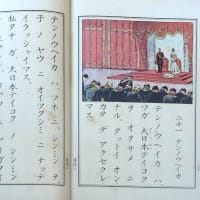 二十一 テンノウヘイカ
テンノウヘイカ ハ、
ワガ 大日本テイコク
ヲ オサメ ニ
ナル、タットイ オン
カタデ アラセラレ
マス。
テンノウヘイカ ハ、ツネニ シンミン ヲ
子 ノ ヤウ ニ オイツクシミ ニ ナッテ
イラッシャイマス。
私タチ ガ、大日本テイコク ノ シンミン